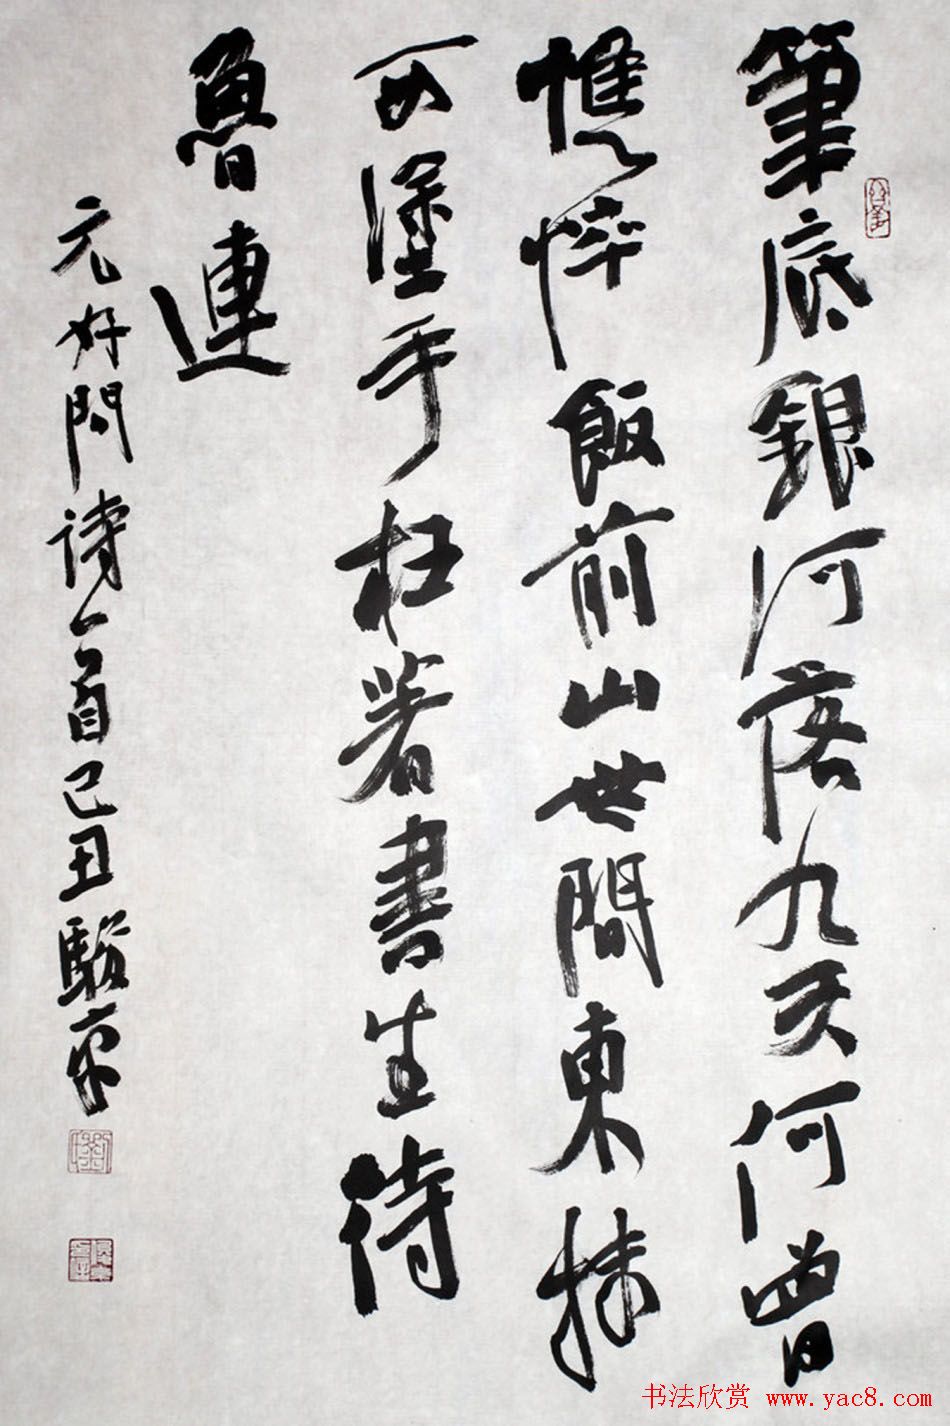 筆底銀河落九天何曾
憔悴飯前山世間東抹
西塗手枉著書生待
魯連
元好問詩一首己丑駿
书法欣赏 www.yac8.com